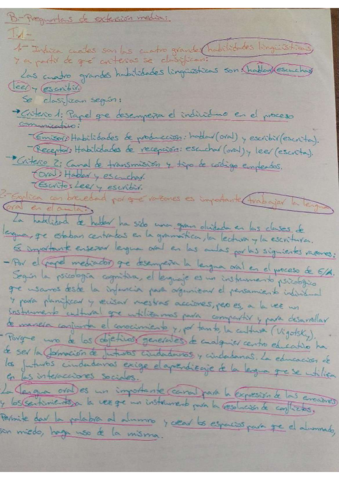 B- Preguntas de extensión media:
1- Indica cuales son las cuatro grandes habilidades lingüísticas
y a partir de que criterios se clasifican:
Las cuatro grandes habilidades lingüísticas son hablar, escuchar
leer y escribir.
Se clasifican según:
Criterio 1: Papel que desempeña el individuo en el proceso
comunicativo:
Emisor: Habilidades de producción: hablar (oral) y escribir (escrita).
Receptor: Habilidades de recepción: escuchar (oral) y leer (escrita).
Criterio 2: Canal de transmisión y tipo de código empleado.
Oral: Hablar y escuchar
Escrito: Leer y escribir.
con brevedad por que es importante trabajar la lengua
oral en
La habilidad de hablar ha sido una gran olvidada en las clases de
lengua, que estaban centradas en la gramática, la lectura y la escritura.
Es importante enseñar lengua oral en las aulas por las siguientes razones:
- Por el papel mediador que desempeña la lengua oral en el proceso de E/A.
Según la psicología cognitiva, el lenguaje es un instrumento psicológico
que usamos desde la infancia para organizar el pensamiento individual
y para planificar y revisar nuestras acciones, pero es a la vez un
instrumento cultural que utilizamos para compartir y para desarrollar
de manera conjunta el conocimiento y, por tanto, la cultura (Vigotsky)
- Porque uno de los objetivos generales de cualquier centro educativo ha
de ser la formación de futuros ciudadanos y ciudadanas. La educación de
los futuros ciudadanos exige el aprendizaje de la lengua que se utiliza
en las interacciones sociales.
- La lengua oral es un importante canal para la expresión de las emociones
y los sentimientos, a la vez que un instrumento para la resolución de conflictos.
Permite dar la palabra al alumno y crear los espacios para que el alumnado,
sin miedo, haga uso de la misma.